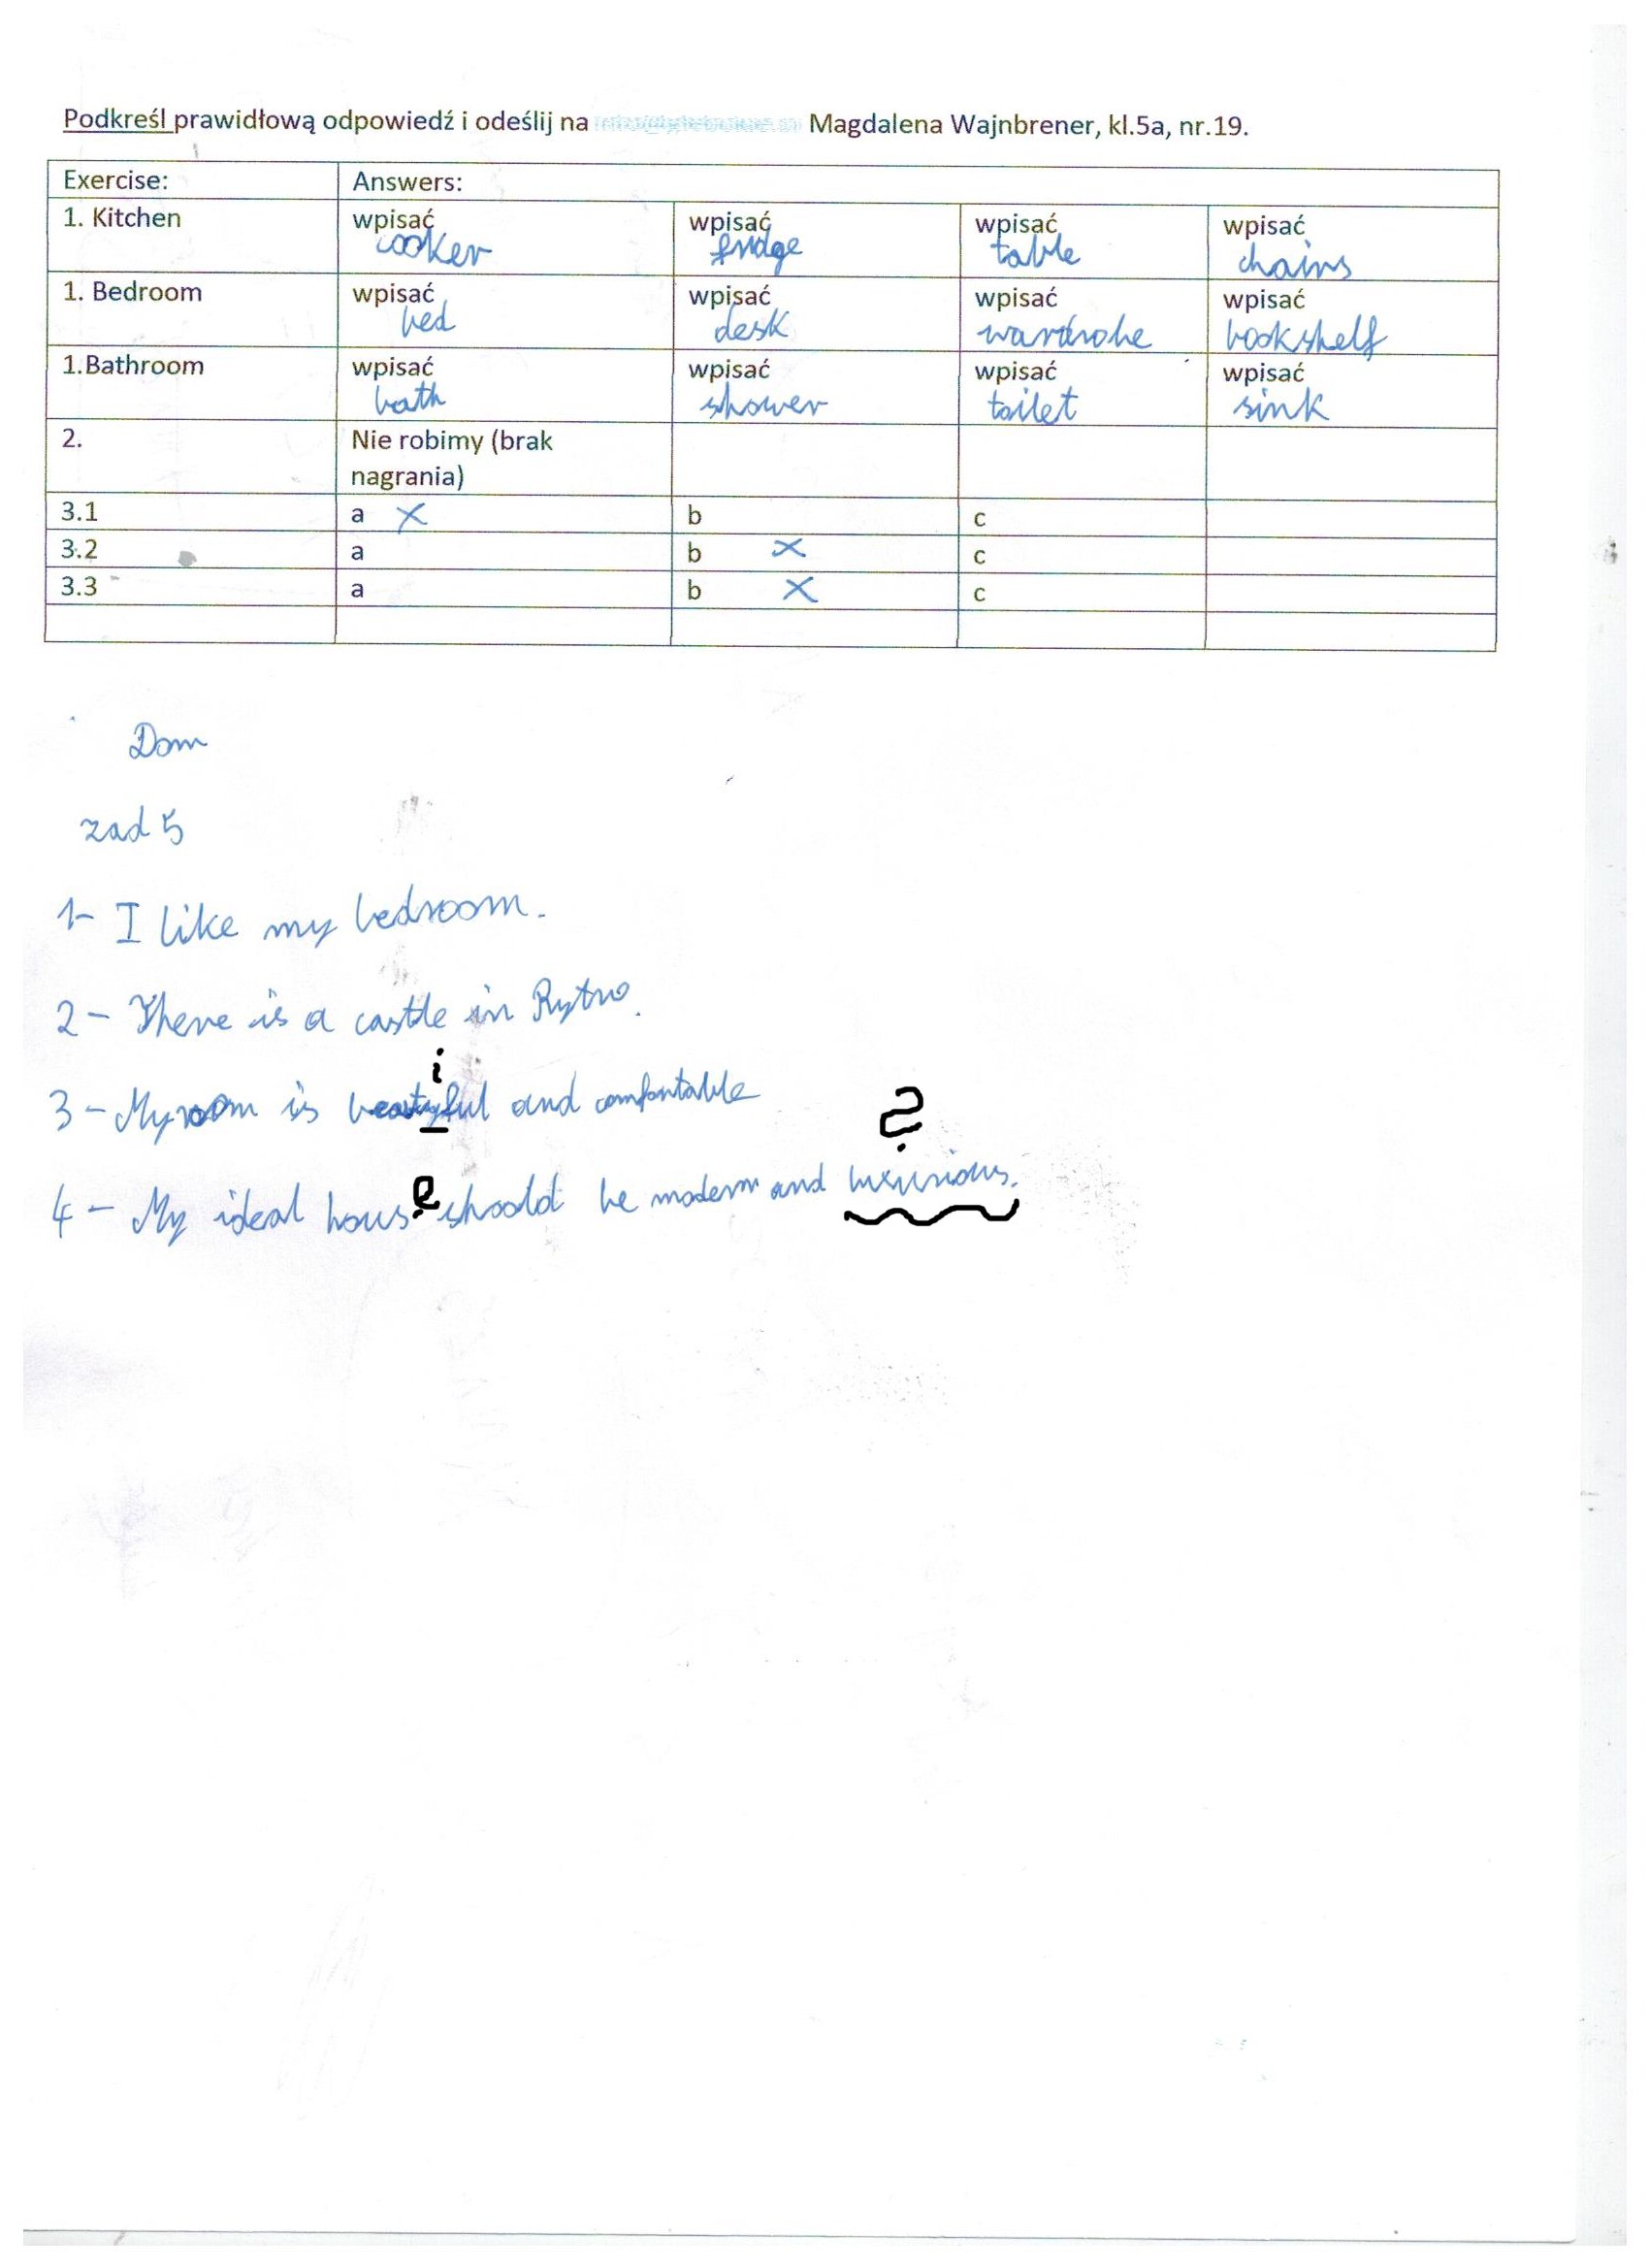 Podkreśl prawidłową odpowiedź i odeślij na Magdalena Wajnbrener, kl.5a, nr.19.
Exercise: Answers:
1. Kitchen wpisać cooker wpisać fridge wpisać table wpisać chairs
1. Bedroom wpisać bed wpisać desk wpisać wardrobe wpisać bookshelf
1.Bathroom wpisać bath wpisać shower wpisać toilet wpisać sink
2. Nie robimy (brak
nagrania)
3.1 a X b c
3.2 a b X c
3.3 a b X c
Dom
zad 5
1- I like my bedroom.
2- There is a castle in Rytro.
i
3- My room is beatyful and comfortable
?
4- My ideal house shoold be modern and luxurious.